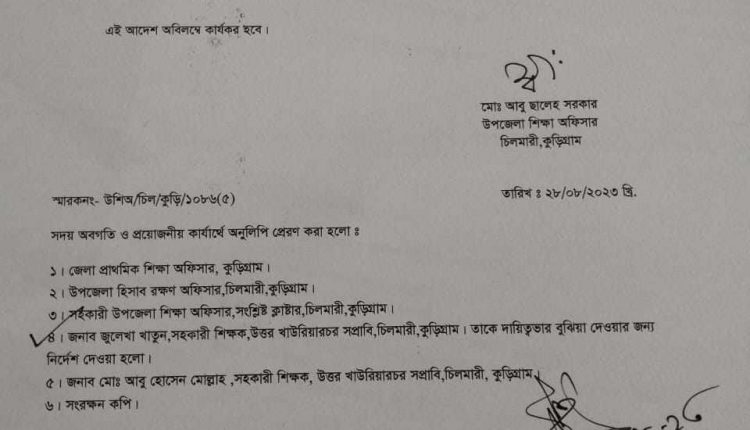 এই আদেশ অবিলম্বে কার্যকর হবে।
মোঃ আবু ছালেহ সরকার
উপজেলা শিক্ষা অফিসার
চিলমারী,কুড়িগ্রাম
স্মারকনং- উশিঅ/চিল/কুড়ি/১০৮৬(৫)
তারিখ ঃ ২৮/০৮/২০২৩ খ্রি.
সদয় অবগতি ও প্রয়োজনীয় কার্যার্থে অনুলিপি প্রেরণ করা হলো ঃ
১। জেলা প্রাথমিক শিক্ষা অফিসার, কুড়িগ্রাম।
২। উপজেলা হিসাব রক্ষণ অফিসার,চিলমারী,কুড়িগ্রাম।
৩। সহকারী উপজেলা শিক্ষা অফিসার,সংশ্লিষ্ট ক্লাষ্টার,চিলমারী,কুড়িগ্রাম।
৪। জনাব জুলেখা খাতুন,সহকারী শিক্ষক,উত্তর খাউরিয়ারচর সপ্রাবি,চিলমারী,কুড়িগ্রাম। তাকে দায়িত্বভার বুঝিয়া দেওয়ার জন্য
নির্দেশ দেওয়া হলো।
৫। জনাব মোঃ আবু হোসেন মোল্লাহ ,সহকারী শিক্ষক, উত্তর খাউরিয়ারচর সপ্রাবি,চিলমারী, কুড়িগ্রাম
৬। সংরক্ষন কপি।